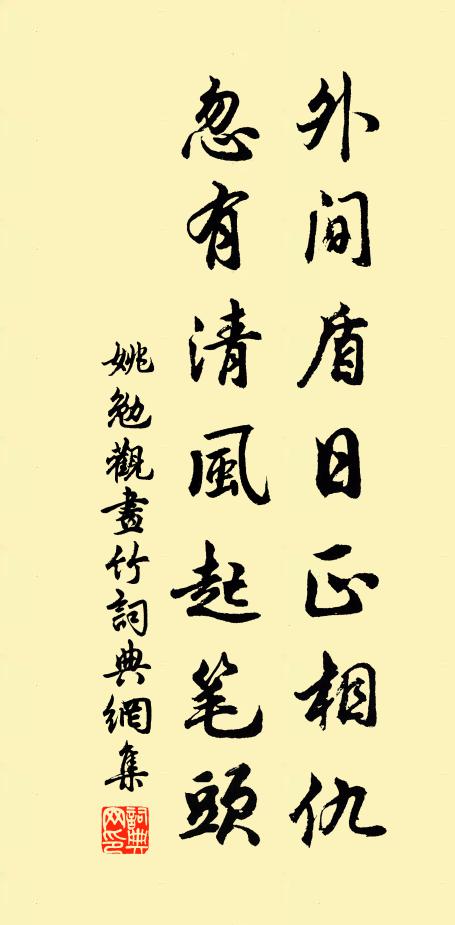 外间盾日正相仇
忽有清風起笔頭
姚勉觀畫竹詞典網集
詞典网印